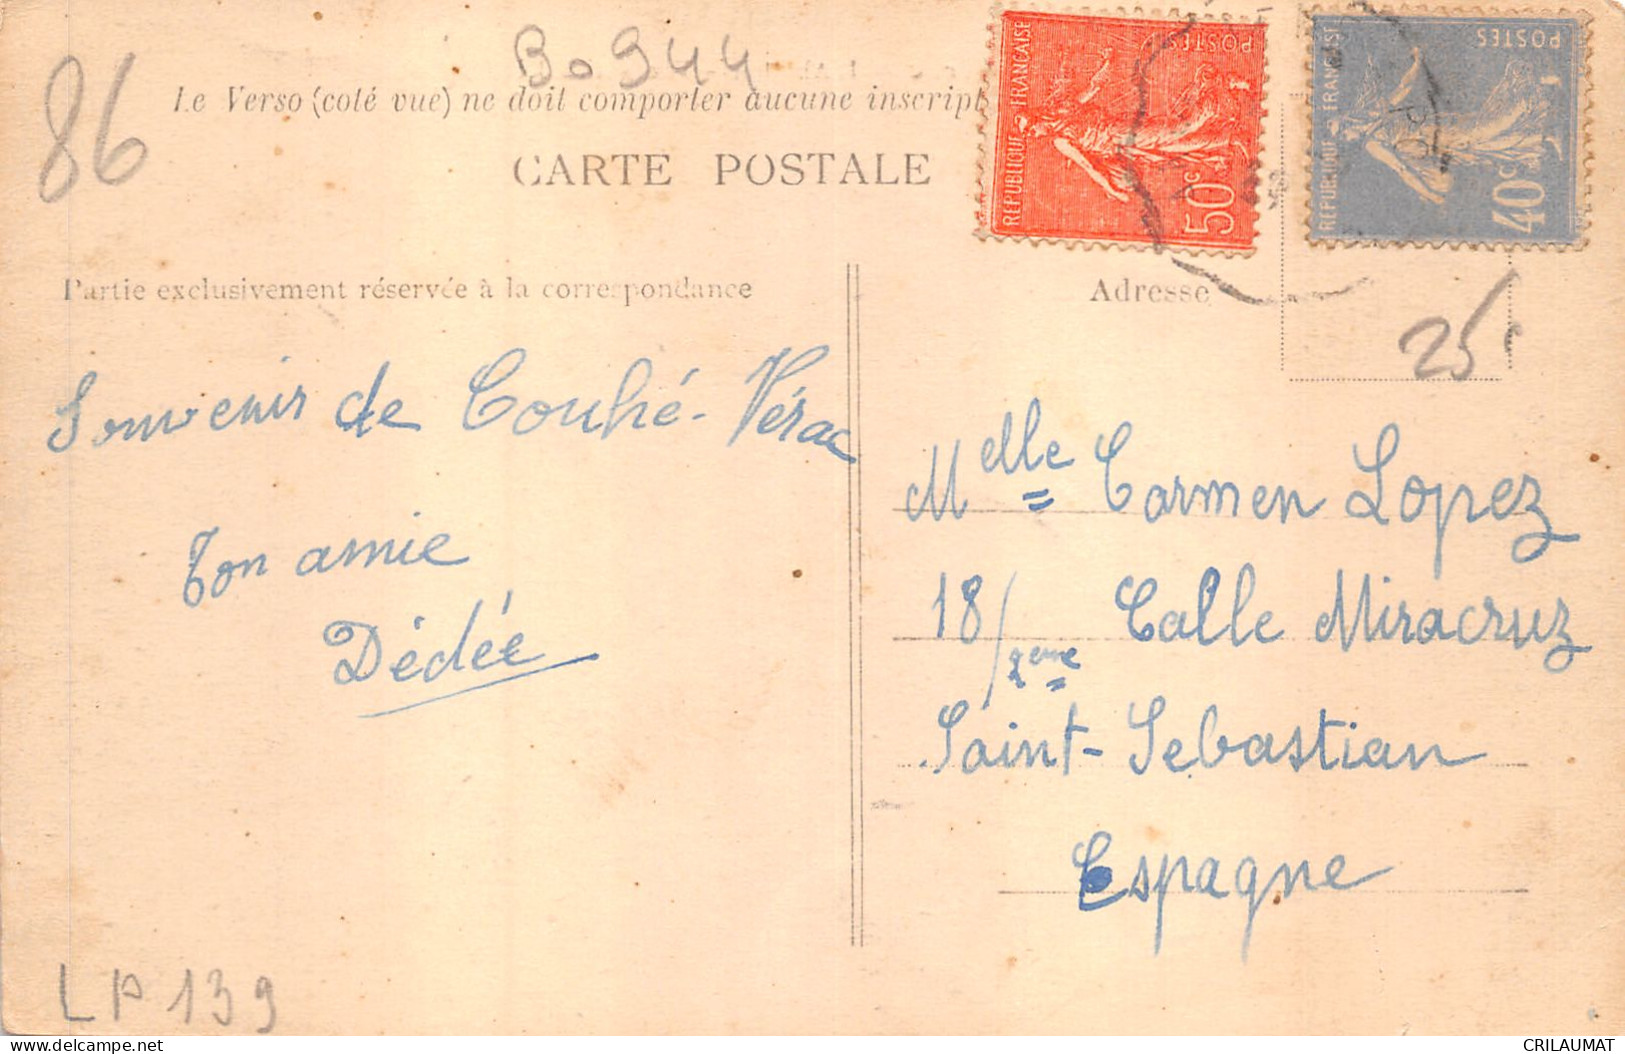 86
Bo 944
Le Verso (coté vue) ne doit comporter aucune inscript
CARTE POSTALE
REPUBLIQUE FRANÇAISE
POSTES
50c
REPUBLIQUE FRANÇAISE
POSTES
40c
Partie exclusivement réservée à la correspondance
Adresse
25
Souvenir de Couhé-Vérac
Ton amie
Dédée
Melle Carmen Lopez
18/2eme Calle Miracruz
Saint-Sebastian
Espagne
LP 139
delcampe.net
CRILAUMAT